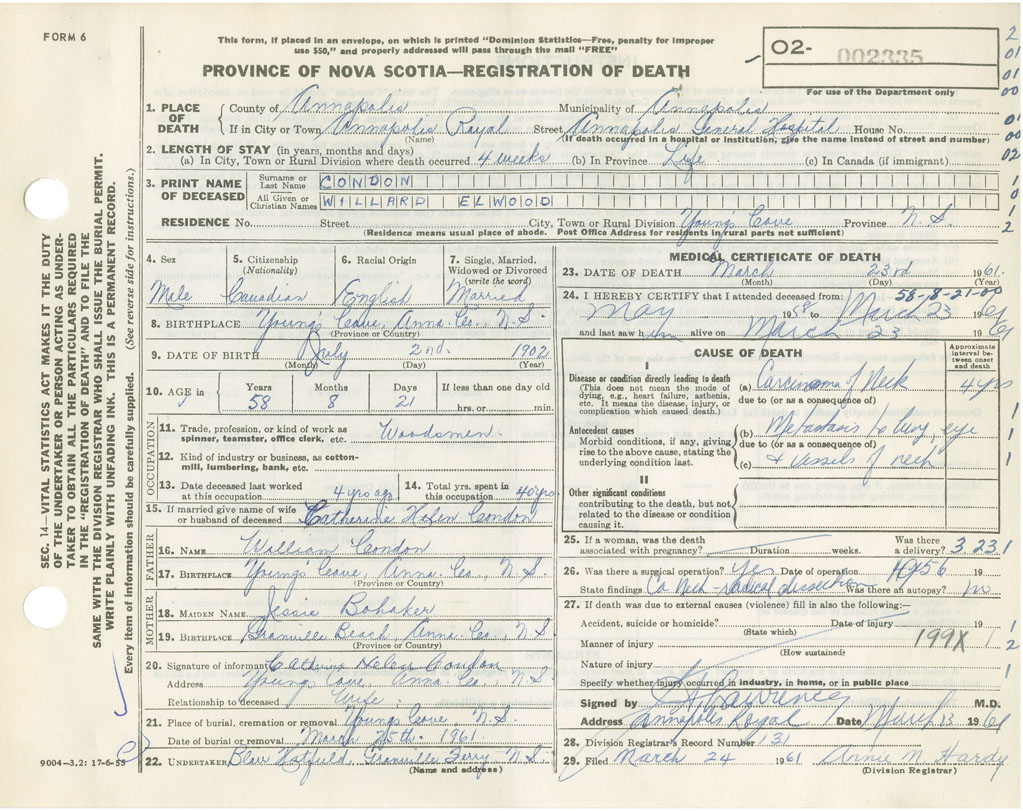 FORM 6
This form, if placed in an envelope, on which is printed "Dominion Statistics—Free, penalty for improper
use $50," and properly addressed will pass through the mail "FREE"
PROVINCE OF NOVA SCOTIA—REGISTRATION OF DEATH
02- 002335
For use of the Department only
1. PLACE OF DEATH County of Annapolis Municipality of Annapolis
If in City or Town Annapolis Royal Street Annapolis General Hospital House No.
(Name) (If death occurred in a hospital or Institution, give the name instead of street and number)
2. LENGTH OF STAY (in years, months and days)
(a) In City, Town or Rural Division where death occurred 4 weeks (b) In Province Life (c) In Canada (if immigrant)
3. PRINT NAME OF DECEASED
Surname or Last Name CONDON
All Given or Christian Names WILLARD ELWOOD
RESIDENCE No. Street City, Town or Rural Division Youngs Cove Province N.S.
(Residence means usual place of abode. Post Office Address for residents in rural parts not sufficient)
4. Sex Male
5. Citizenship (Nationality) Canadian
6. Racial Origin English
7. Single, Married, Widowed or Divorced (write the word) Married
8. BIRTHPLACE Youngs Cove, Anna. Co., N.S.
(Province or Country)
9. DATE OF BIRTH July 2nd. 1902
(Month) (Day) (Year)
10. AGE in Years 58 Months 8 Days 21 If less than one day old hrs. or min.
OCCUPATION
11. Trade, profession, or kind of work as spinner, teamster, office clerk, etc. Woodsmen.
12. Kind of industry or business, as cotton-mill, lumbering, bank, etc.
13. Date deceased last worked at this occupation 4 yrs ago
14. Total yrs. spent in this occupation 40 yrs
15. If married give name of wife or husband of deceased Catherine Helen Condon
FATHER
16. NAME William Condon
17. BIRTHPLACE Youngs Cove, Anna. Co., N.S.
(Province or Country)
MOTHER
18. MAIDEN NAME Jessie Bohaker
19. BIRTHPLACE Granville Beach, Anna. Co., N.S.
(Province or Country)
20. Signature of informant Catherine Helen Condon
Address Youngs Cove, Anna. Co., N.S.
Relationship to deceased Wife.
21. Place of burial, cremation or removal Youngs Cove, N.S.
Date of burial or removal March 25th. 1961.
22. UNDERTAKER Blair Hatfield, Granville Ferry N.S.
(Name and address)
MEDICAL CERTIFICATE OF DEATH
23. DATE OF DEATH March 23rd. 1961.
(Month) (Day) (Year)
58-8-21-00
24. I HEREBY CERTIFY that I attended deceased from:
May 1958 to March 23 1961
and last saw him alive on March 23 1961
CAUSE OF DEATH
Approximate interval between onset and death
I
Disease or condition directly leading to death
(This does not mean the mode of dying, e.g., heart failure, asthenia, etc. It means the disease, injury, or complication which caused death.)
(a) Carcinoma of Neck 4 yrs
due to (or as a consequence of)
Antecedent causes
Morbid conditions, if any, giving rise to the above cause, stating the underlying condition last.
(b) Metastasis to lung, eye
due to (or as a consequence of)
(c) & vessels of neck
II
Other significant conditions
contributing to the death, but not related to the disease or condition causing it.
25. If a woman, was the death associated with pregnancy? Duration weeks. Was there a delivery? 3 23 1
26. Was there a surgical operation? Yes Date of operation 1956 19
State findings Ca Neck - radical dissection Was there an autopsy? no
27. If death was due to external causes (violence) fill in also the following:—
Accident, suicide or homicide? Date of injury 19
(State which)
Manner of injury 199X
(How sustained)
Nature of injury
Specify whether injury occurred in industry, in home, or in public place
Signed by Lawrence M.D.
Address Annapolis Royal Date March 23 1961
28. Division Registrar's Record Number 131
29. Filed March 24 1961 Annie M. Hardy
(Division Registrar)
SEC. 14—VITAL STATISTICS ACT MAKES IT THE DUTY
OF THE UNDERTAKER OR PERSON ACTING AS UNDER-
TAKER TO OBTAIN ALL THE PARTICULARS REQUIRED
IN THE "REGISTRATION OF DEATH" AND TO FILE THE
SAME WITH THE DIVISION REGISTRAR WHO SHALL ISSUE THE BURIAL PERMIT.
WRITE PLAINLY WITH UNFADING INK. THIS IS A PERMANENT RECORD.
Every item of information should be carefully supplied. (See reverse side for instructions.)
9004—3.2: 17-6-55